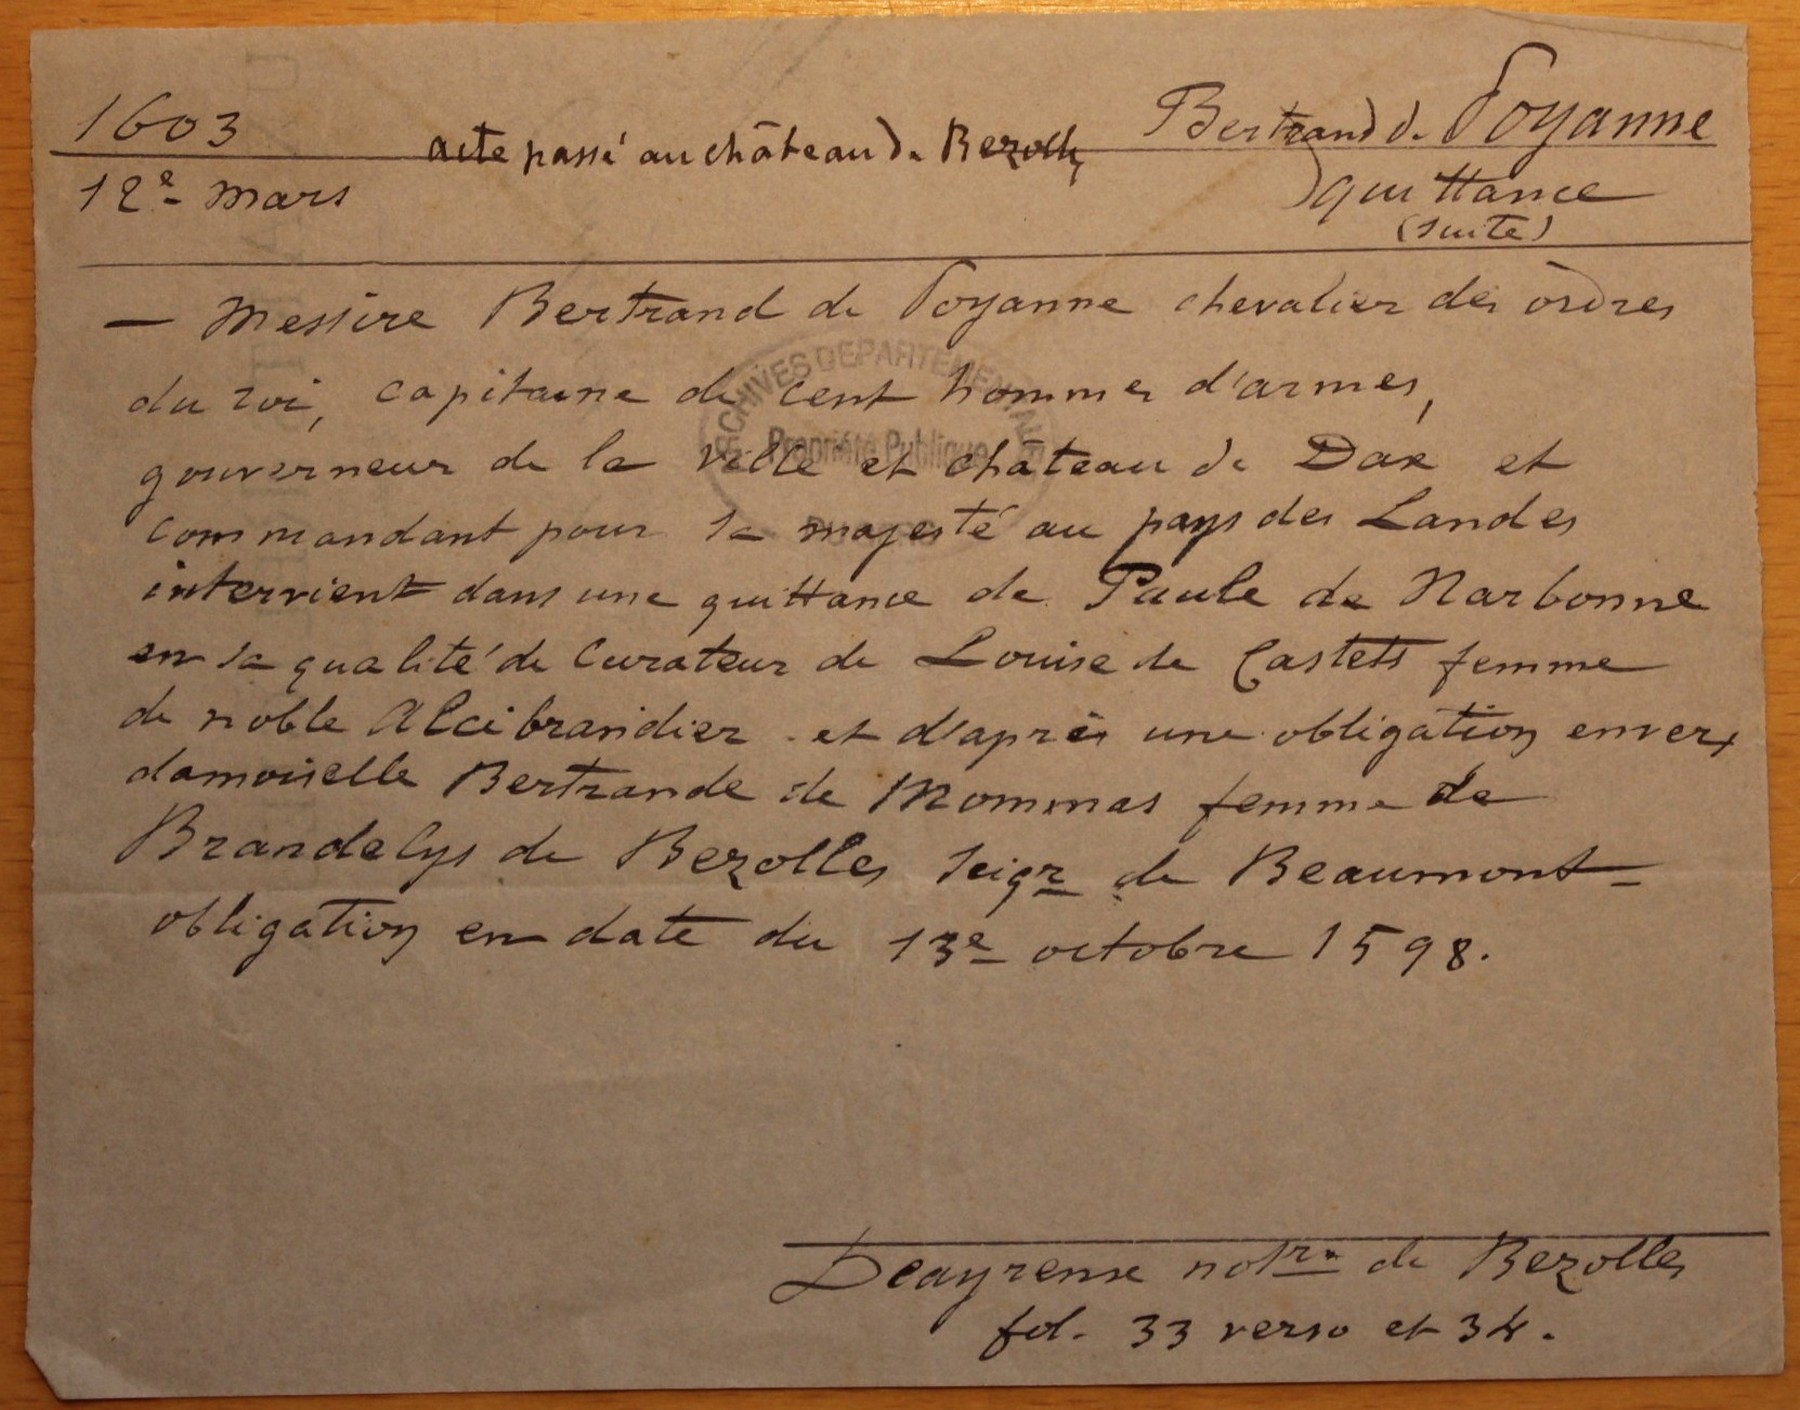 1603
12e mars
acte passé au château de Bezolles
Bertrand de Poyanne
quittance
(suite)
— Messire Bertrand de Poyanne chevalier des ordres
du roi, capitaine de cent hommes d'armes,
gouverneur de la ville et château de Dax et
commandant pour sa majesté au pays des Landes
intervient dans une quittance de Paule de Narbonne
en sa qualité de Curateur de Louise de Castets femme
de noble Alcibrandier et d'après une obligation envers
damoiselle Bertrande de Mommas femme de
Brandelys de Bezolles Seigr de Beaumont
obligation en date du 13e octobre 1598.
ARCHIVES DEPARTEMENTALES
Propriété Publique
notre de Bezolles
fol. 33 verso et 34.